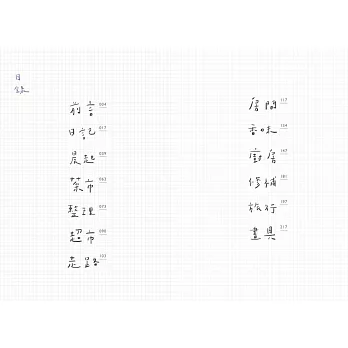 目
錄
前言 004
日記 017
晨起
菜市 063
整理 075
超市 090
走路 103
居間 117
香味
廚房 147
修補 181
旅行 197
畫具 217